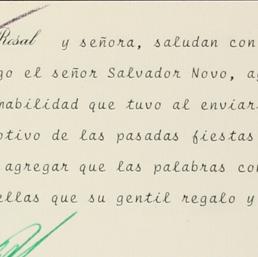 Rosal y señora, saludan con
go el señor Salvador Novo, ag
mabilidad que tuvo al enviars
otivo de las pasadas fiestas
agregar que las palabras con
ellas que su gentil regalo y